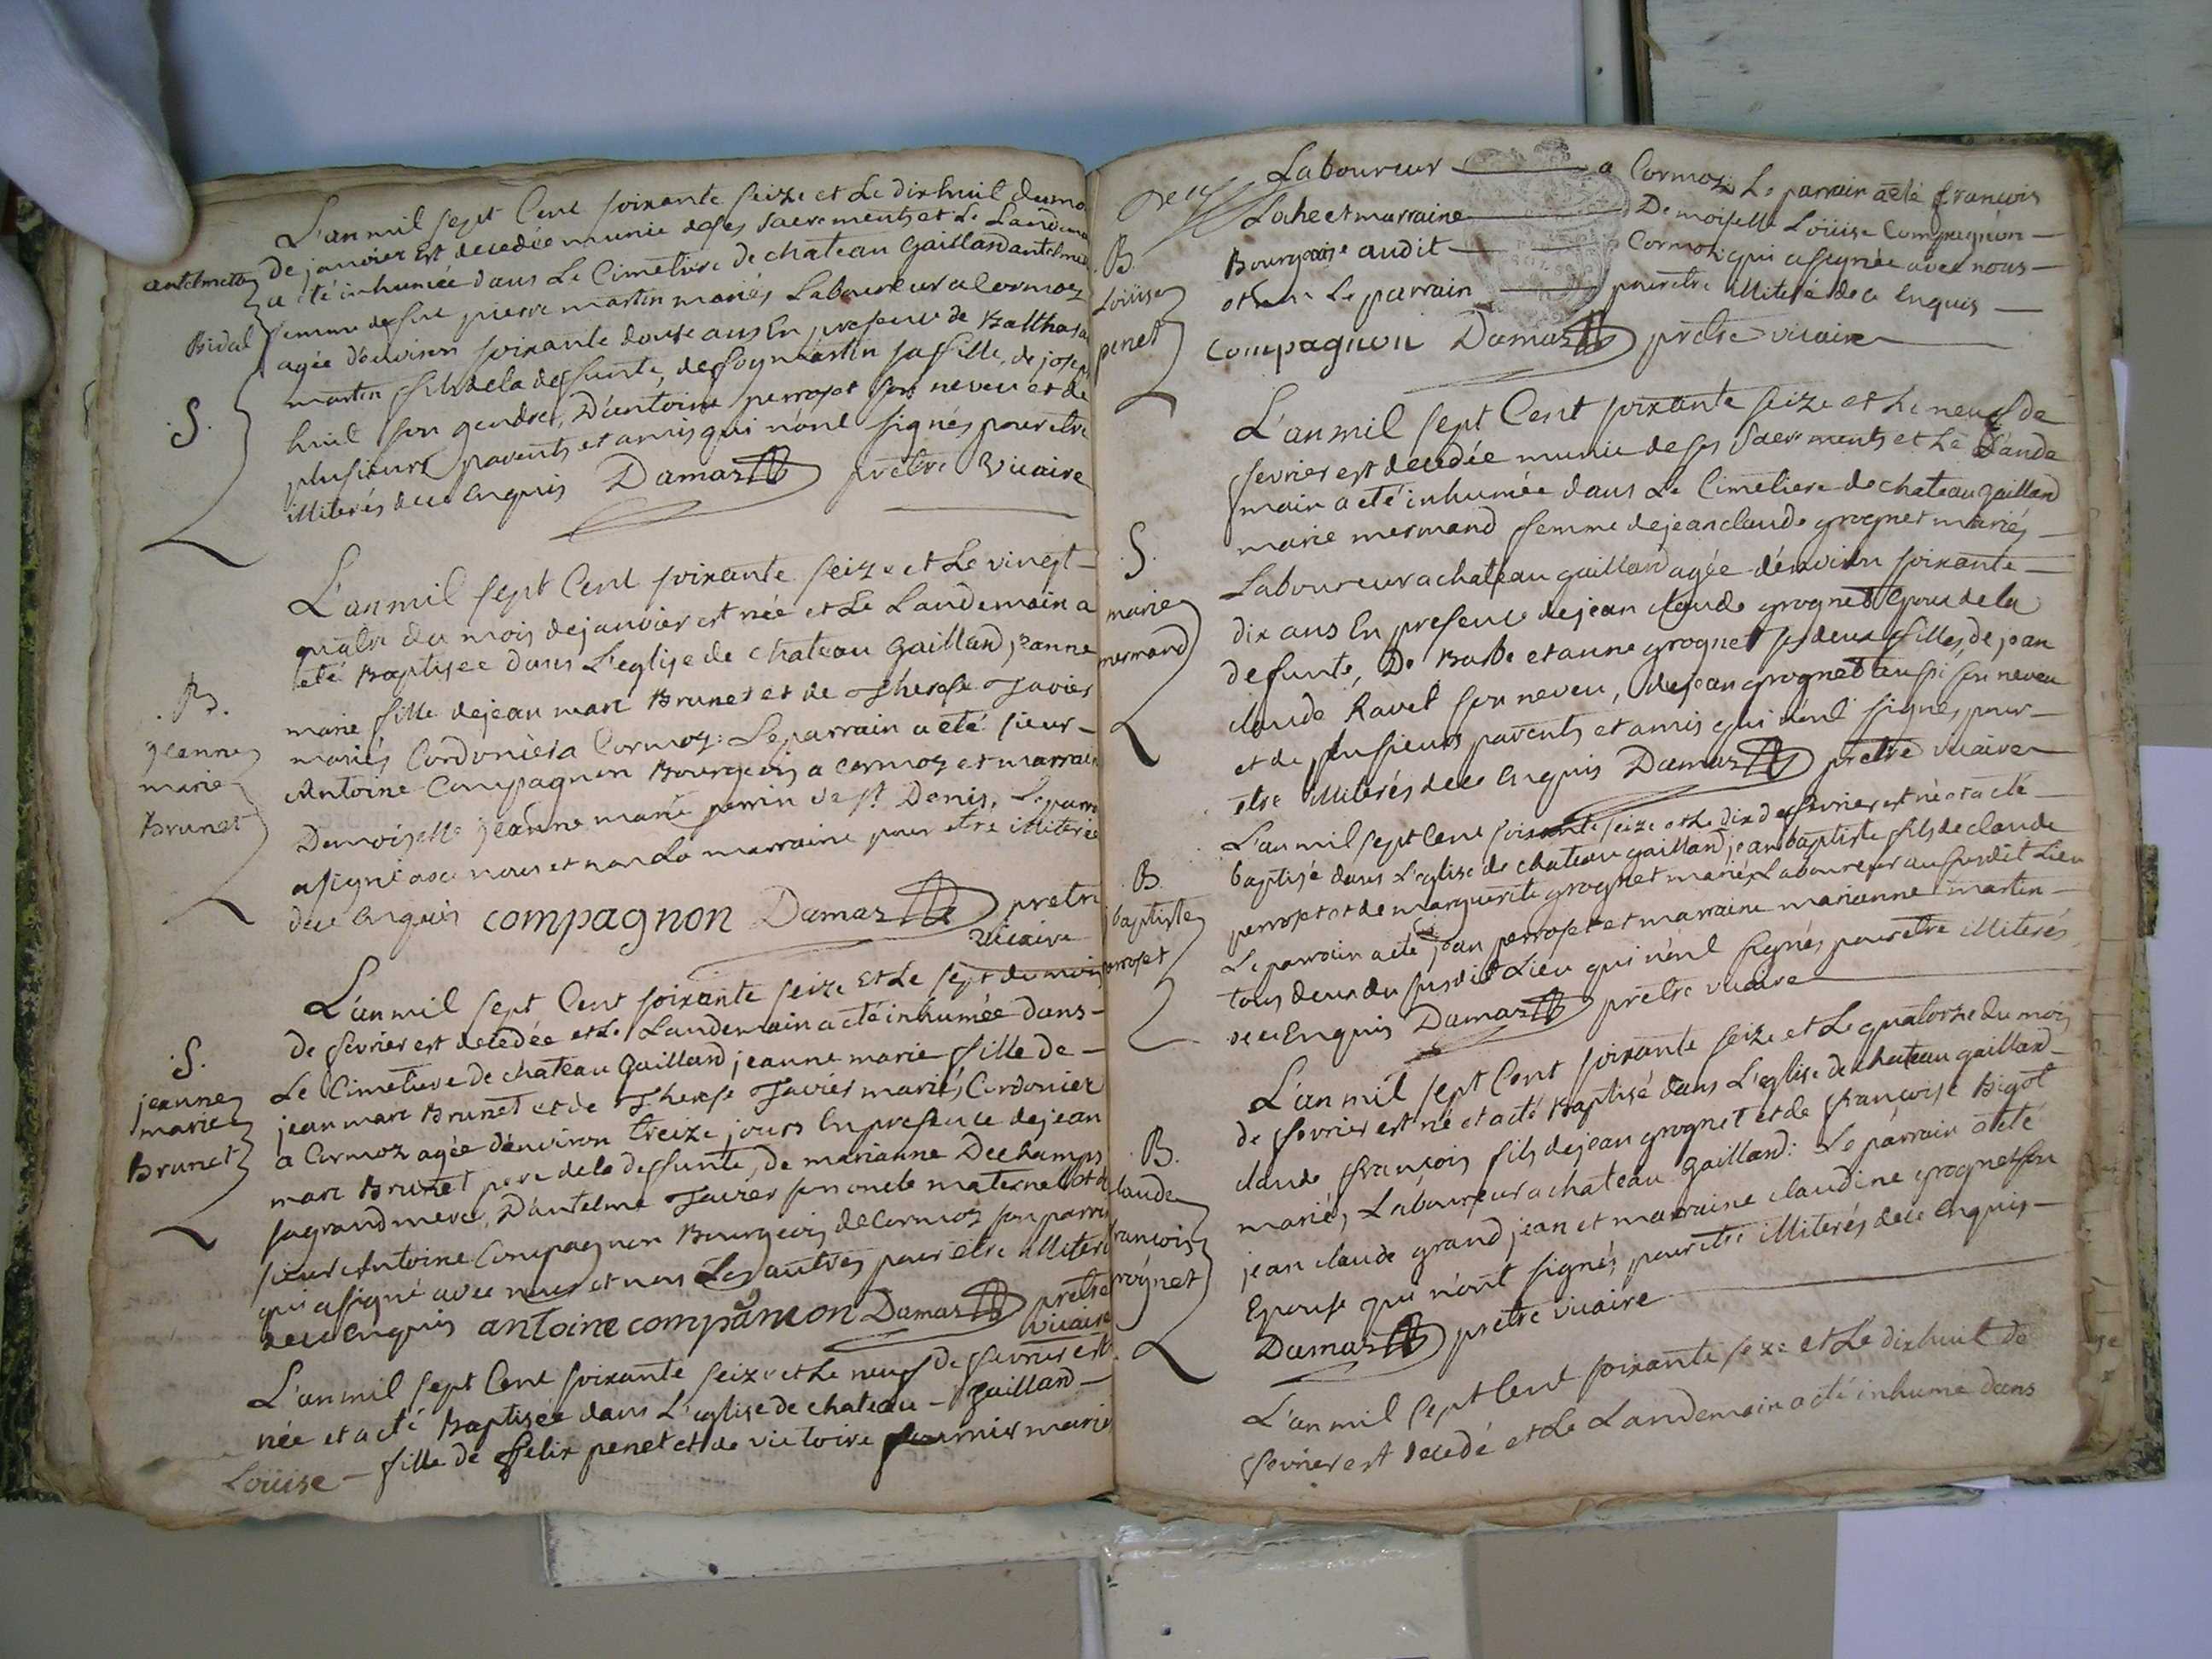 L'an mil sept Cent soixante seize et Le dixhuit du mo
de janvier Est decedée munie de ses sacrements et Le Landema
a eté inhumée dans Le Cimetiere de chateau Gaillard antelmet
femme de feu pierre martin mariés Laboureur a Cormoz
agée d'environ soixante douse ans En presence de Balthasa
martin fils de la deffunte, de martin sa fille, de josep
huit son gendre, D'antoine perroset son neveu et de
plusieurs parents et amis qui n'ont signés pour etre
illiterés de ce Enquis Damaz prêtre Vicaire
antelmette
Bidal
S.
L'an mil sept Cent soixante seize et Le vingt-
quatre du mois de janvier est née et Le Landemain a
eté Baptisée dans L'eglise de chateau Gaillard, jeanne
marie fille de jean marc Brunet et de Therese Tavier
mariés Cordonier a Cormoz: Le parrain a eté sieur-
Antoine Compagnon Bourgeois a Cormoz et marrain
Demoiselle jeanne marie perrin de st Denis, Le parra
a signé avec nous et non La marraine pour etre illiterée
de ce Enquis compagnon Damaz pretre
vicaire
.B.
jeanne
marie
Brunet
L'an mil sept Cent soixante seize Et Le sept du mois
de fevrier est decedée et Le Landemain a eté inhumée dans-
Le Cimetiere de chateau Gaillard jeanne marie fille de-
jean marc Brunet et de Therese Tavier mariés, Cordonier
a Cormoz agée d'environ treize jours En presence de jean
marc Brunet pere de la deffunte, de marianne Dechamps
sa grand mere, D'antelme Tavier son oncle maternel et de
sieur Antoine Compagnon Bourgeois de Cormoz son parra
qui a signé avec nous et non Les autres pour etre illiteré
de ce Enquis antoine compagnon Damaz prêtre
vicaire
S.
jeanne
marie
Brunet
L'an mil sept Cent soixante seize et Le neuf de fevrier est
née et a eté Baptisée dans L'eglise de chateau - gaillard-
Loüise - fille de felix penet et de victoire fournier mariés
Laboureur a Cormoz, Le parrain a eté françois
Loche et marraine Demoiselle Loüise Compagnon-
Bourgeoise audit Cormoz qui a signée avec nous-
et non Le parrain pour etre illiteré de ce Enquis-
compagnon Damaz prêtre vicaire
B.
Loüise
penet
L'an mil sept Cent soixante seize et Le neuf de
fevrier est decedée munie de ses sacrements et Le Lande
main a eté inhumée dans Le Cimetiere de chateau gaillard
marie mermand femme de jean claude grognet mariés-
Laboureur a chateau gaillard agée d'environ soixante-
dix ans En presence de jean claude grognet Epoux de la
defunte, De et anne grognet ses deux filles, de jean
claude Ravet son neveu, de jean grognet aussi son neveu
et de plusieurs parents et amis qui n'ont signés pour-
etre illiterés de ce Enquis Damaz prêtre vicaire
S.
marie
mermand
L'an mil sept Cent soixante seize et Le dix de fevrier est né et a eté-
baptisé dans L'eglise de chateau gaillard jean baptiste fils de claude
perroset et de marguerite grognet mariés Laboureur au susdit Lieu
Le parrain a eté jean perroset et marraine marianne martin-
tous deux du susdit Lieu qui n'ont signés pour etre illiterés
de ce Enquis Damaz prêtre vicaire
B.
baptiste
perroset
L'an mil sept Cent soixante seize et Le quatorze du mois
de fevrier est né et a eté Baptisé dans L'eglise de chateau gaillard-
claude françois fils de jean grognet et de françoise Bigot
mariés, Laboureur a chateau Gaillard: Le parrain a eté
jean claude grand jean et marraine claudine grognet son
Epouse qui n'ont signés pour etre illiterés de ce Enquis-
Damaz prêtre vicaire
.B.
claude
françois
grognet
L'an mil sept Cent soixante seze et Le dixhuit de
fevrier est decedé et Le Landemain a eté inhume dans